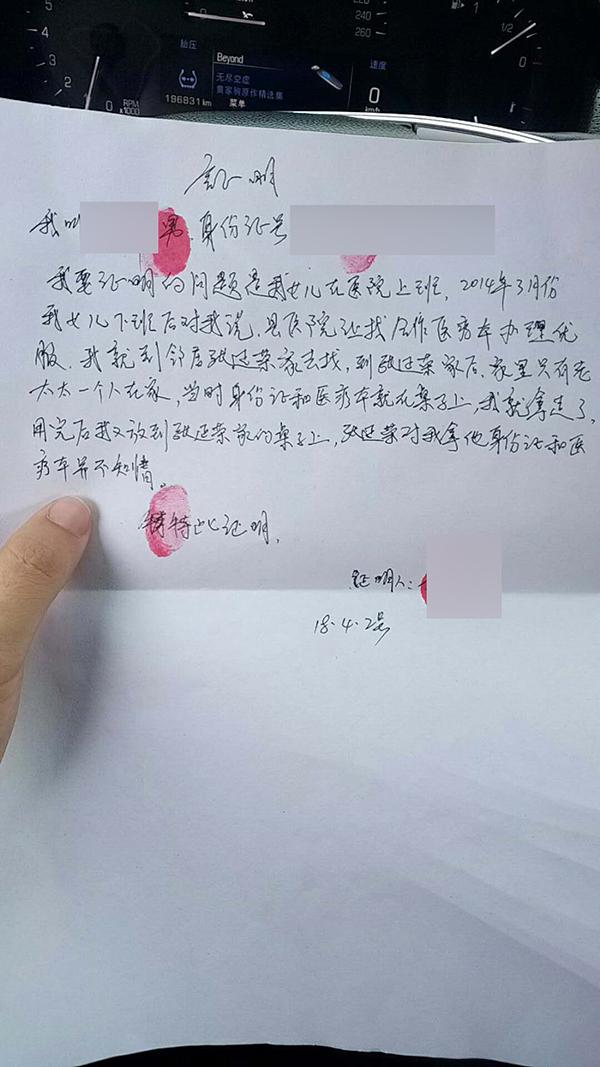 5
4
3
2
1
0
RPM
x1000
胎压
196831 km
Beyond
无尽空虚
黄家驹原作精选集
菜单
220
240
260
速度
0
km/h
1
1/2
0
证明
我叫
男 身份证号
我要证明的问题是我女儿在医院上班，2014年3月份
我女儿下班后对我说，县医院让找合作医疗本办理优
服，我就到邻居张廷荣家去找，到张廷荣家后，家里只有老
太太一个人在家，当时身份证和医疗本就在桌子上，我就拿走了，
用完后我又放到张廷荣家的桌子上，张廷荣对我拿他身份证和医
疗本并不知情。
特此证明，
证明人：
18.4.2号